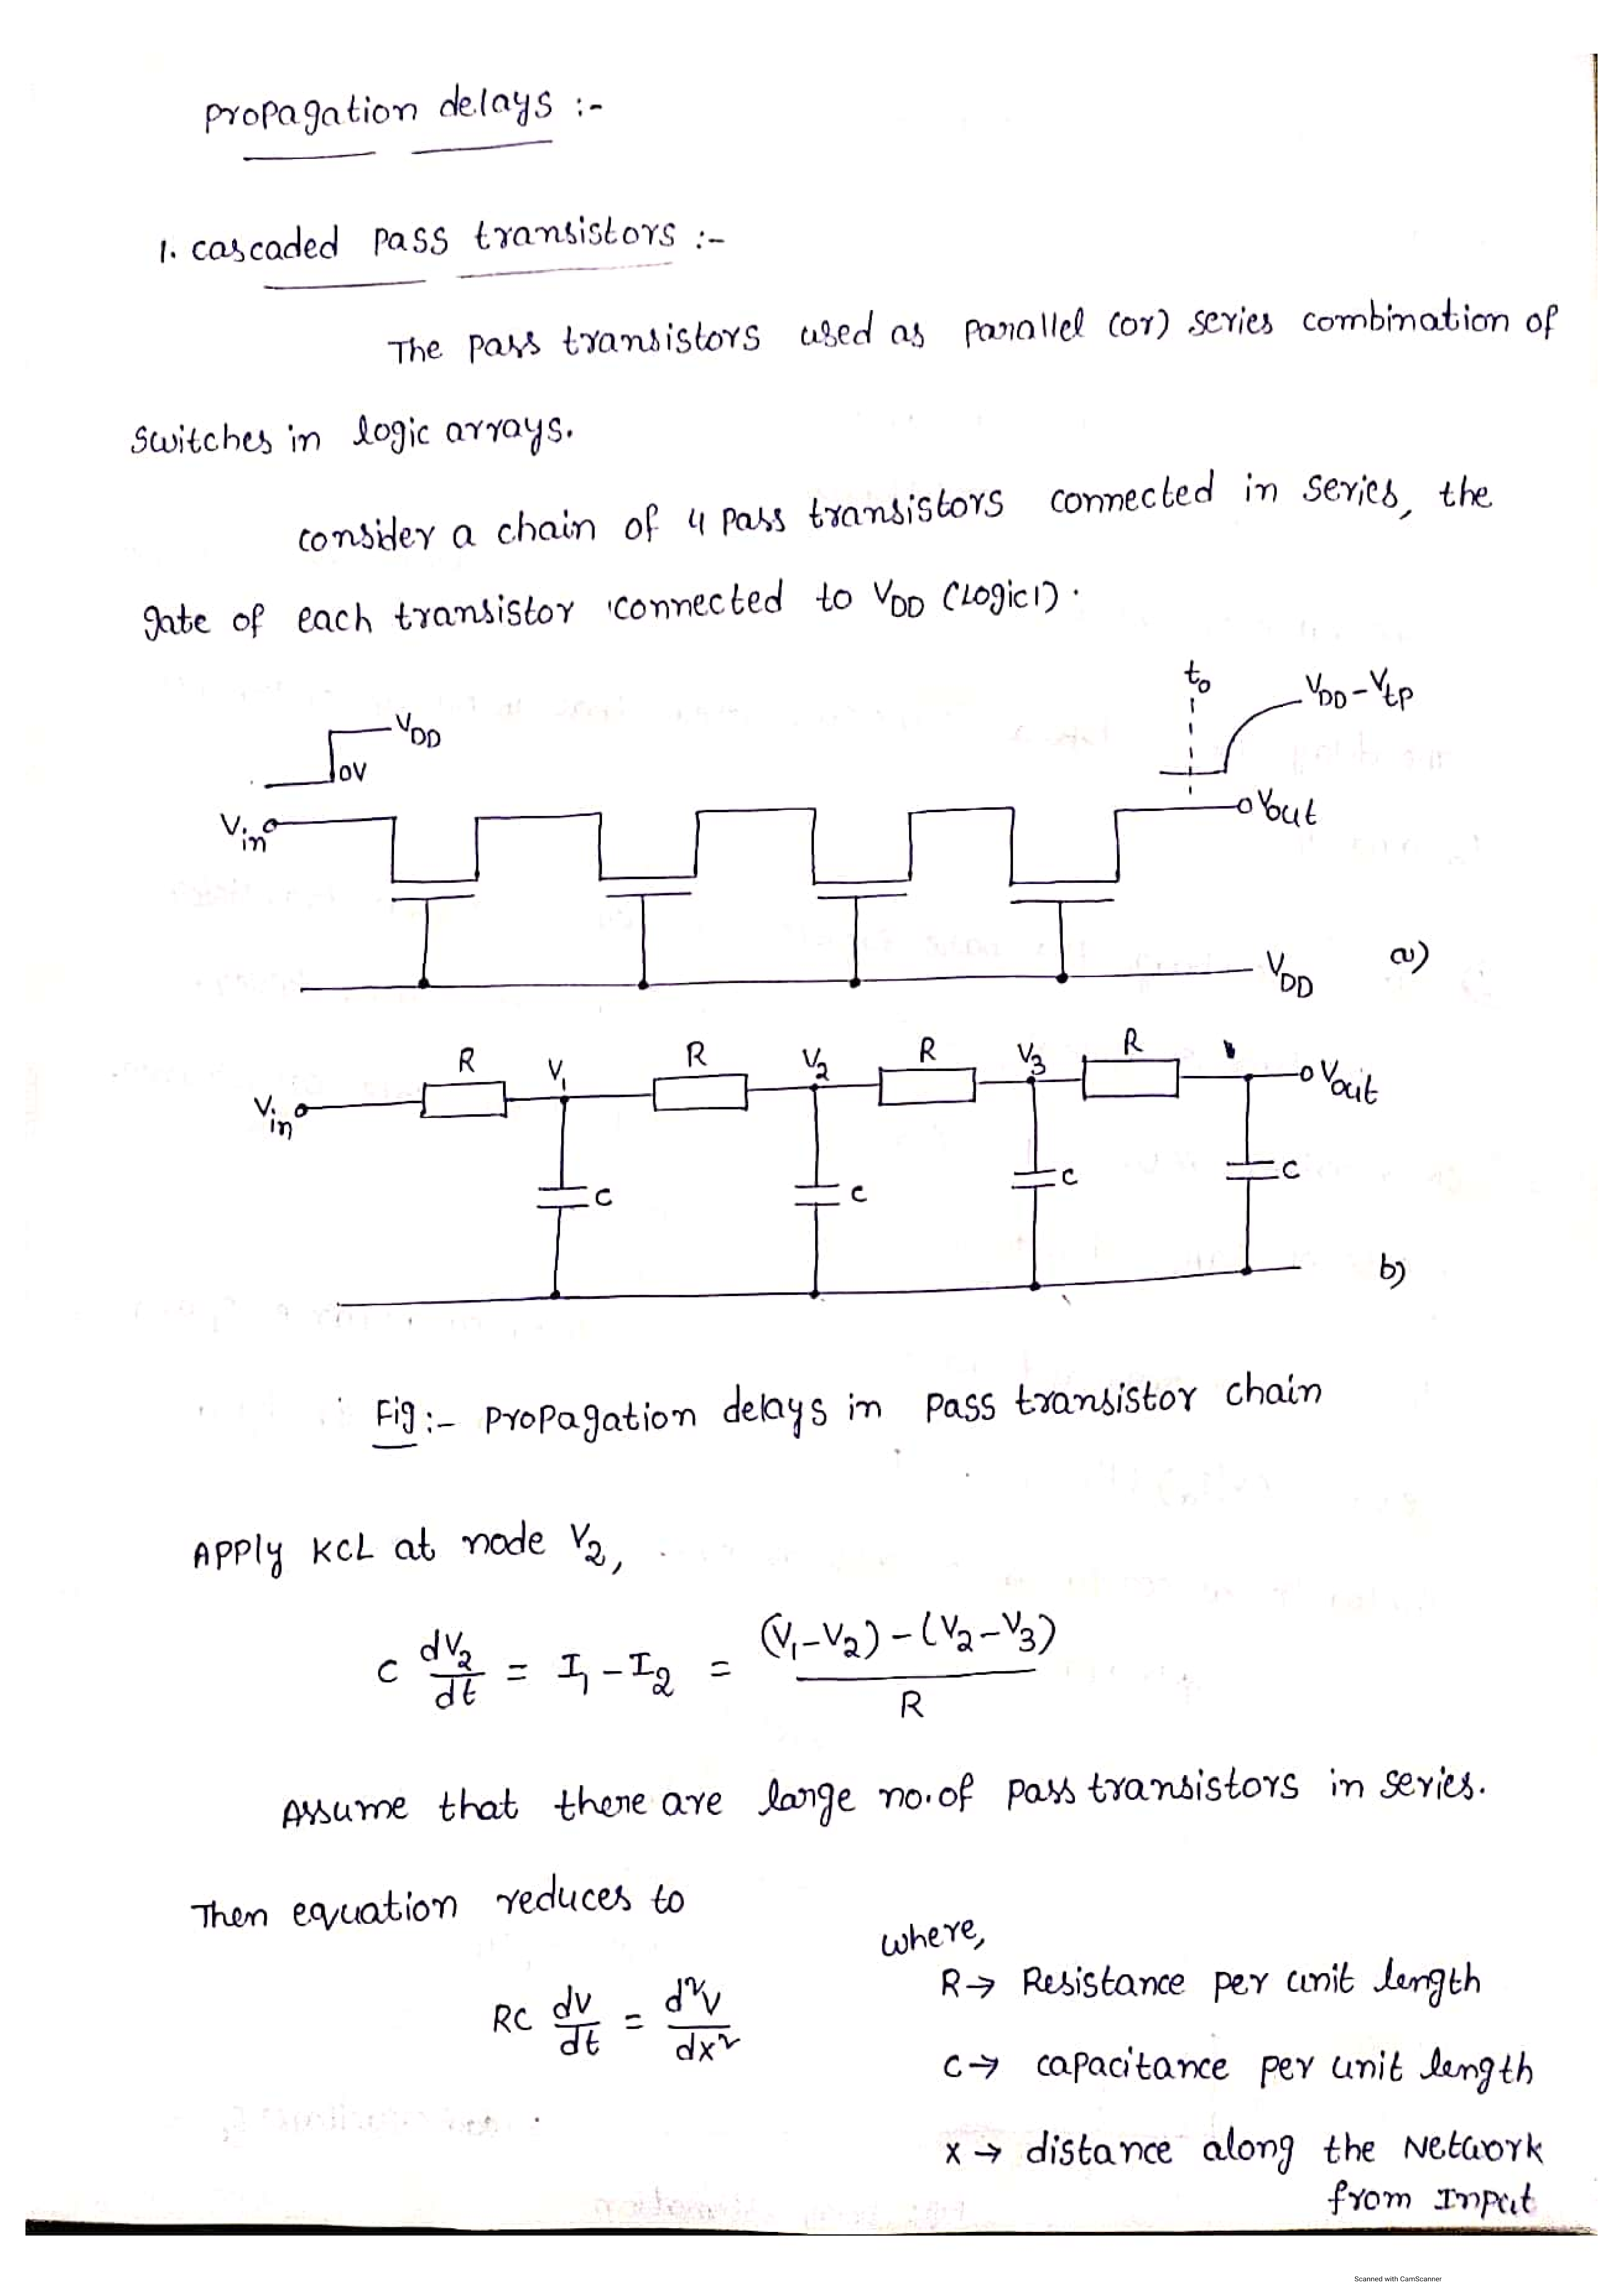 Propagation delays :-
1. cascaded pass transistors :-
The pass transistors used as parallel (or) series combination of
switches in logic arrays.
consider a chain of 4 pass transistors connected in series, the
gate of each transistor connected to VDD (Logic1).
t0
VDD-Vtp
VDD
0V
Vin
Vout
VDD
a)
R
V1
R
V2
R
V3
R
Vin
Vout
C
C
C
C
b)
Fig:- Propagation delays in pass transistor chain
Apply KCL at node V2,
C dV2/dt = I1 - I2 = (V1-V2)-(V2-V3)/R
Assume that there are large no.of pass transistors in series.
Then equation reduces to
where,
R→ Resistance per unit length
RC dv/dt = d²v/dx²
C→ capacitance per unit length
x → distance along the Network
from Input
Scanned with CamScanner